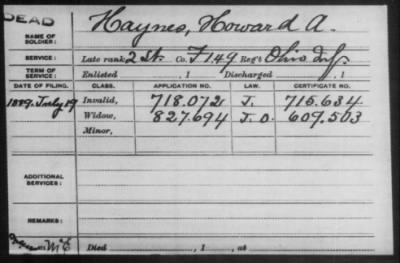 DEAD
NAME OF SOLDIER: Haynes, Howard A.
SERVICE: Late rank 2 Co. F 149 Reg't Ohio Inf.
TERM OF SERVICE: Enlisted , 1 Discharged , 1
DATE OF FILING. CLASS. APPLICATION NO. LAW. CERTIFICATE NO.
1889. July 19 Invalid, 718.072 J. 715.634
Widow, 827.694 J. 609.503
Minor,
ADDITIONAL SERVICES:
REMARKS:
Died , 1 , at